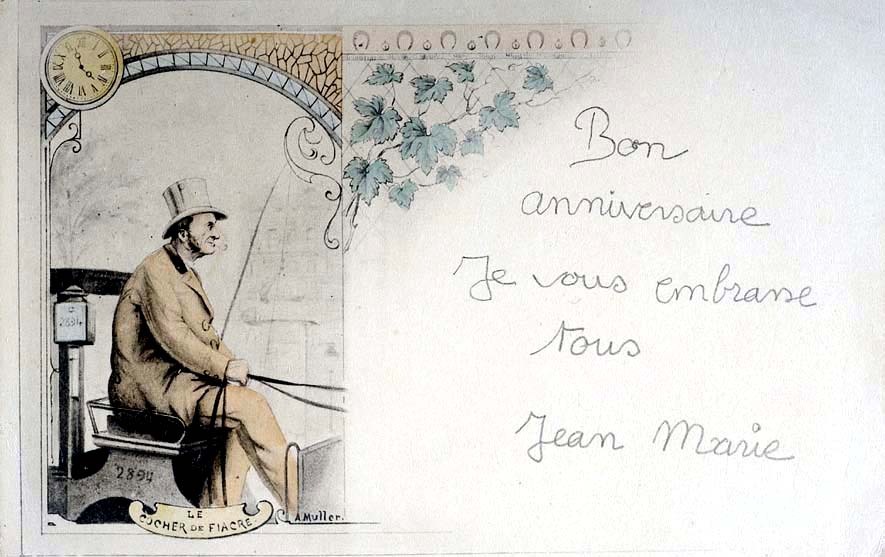 Bon
anniversaire
Je vous embrasse
tous
Jean Marie
2894
2894
LE
COCHER DE FIACRE
A. Muller.